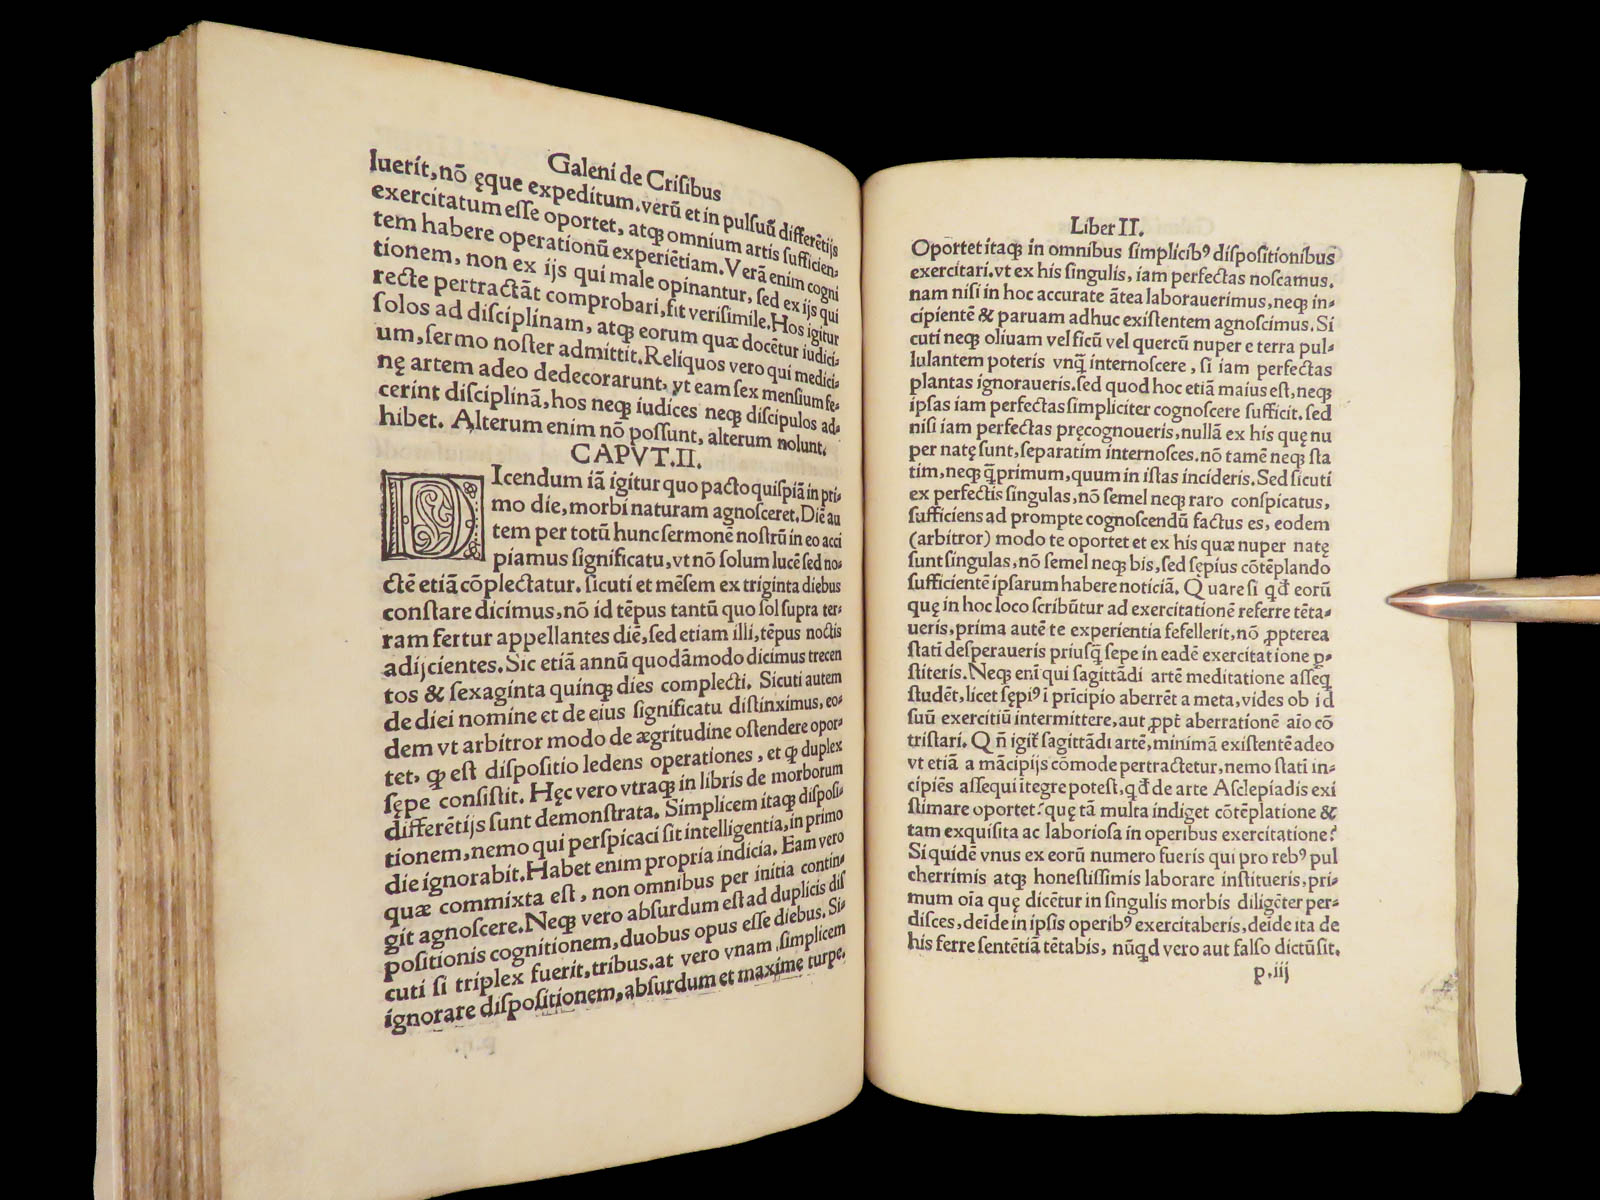 Galeni de Crisibus
luerit, nō ęque expeditum. verū et in pulsuū differētijs
exercitatum esse oportet, atqꝫ omnium artis sufficien-
tem habere operationū experiētiam. Verā enim cogni
tionem, non ex ijs qui male opinantur, sed ex ijs qui
recte pertractāt comprobari, fit verisimile. Hos igitur
solos ad disciplinam, atqꝫ eorum quæ docētur iudici-
um, sermo noster admittit. Reliquos vero qui medici-
nę artem adeo dedecorarunt, yt eam sex mensium fe-
cerint disciplinā, hos neqꝫ iudices neqꝫ discipulos ad-
hibet. Alterum enim nō possunt, alterum nolunt.
CAPVT. II.
DIcendum iā igitur quo pacto quispiā in pri-
mo die, morbi naturam agnosceret. Diē au
tem per totū hunc sermonē nostrū in eo acci
piamus significatu, vt nō solum lucē sed no-
ctē etiā cōplectatur. sicuti et mēsem ex triginta diebus
constare dicimus, nō id tēpus tantū quo sol supra ter-
ram fertur appellantes diē, sed etiam illi, tēpus noctis
adijcientes. Sic etiā annū quodāmodo dicimus trecen
tos & sexaginta quinqꝫ dies complecti. Sicuti autem
de diei nomine et de eius significatu distinximus, eo-
dem vt arbitror modo de ægritudine ostendere opor-
tet, ꝙ est dispositio ledens operationes, et ꝙ duplex
sępe consistit. Hęc vero vtraqꝫ in libris de morborum
differētijs sunt demonstrata. Simplicem itaqꝫ disposi-
tionem, nemo qui perspicaci sit intelligentia, in primo
die ignorabit. Habet enim propria indicia. Eam vero
quæ commixta est, non omnibus per initia contin-
git agnoscere. Neqꝫ vero absurdum est ad duplicis dis
positionis cognitionem, duobus opus esse diebus. Si-
cuti si triplex fuerit, tribus. at vero vnam simplicem
ignorare dispositionem, absurdum et maxime turpe.
Liber II.
Oportet itaqꝫ in omnibus simplicibꝰ dispositionibus
exercitari. vt ex his singulis, iam perfectas noscamus.
nam nisi in hoc accurate ātea laborauerimus, neqꝫ in-
cipientē & paruam adhuc existentem agnoscimus. Si
cuti neqꝫ oliuam vel ficū vel quercū nuper e terra pul-
lulantem poteris vnqꝫ internoscere, si iam perfectas
plantas ignoraueris. sed quod hoc etiā maius est, neqꝫ
ipsas iam perfectas simpliciter cognoscere sufficit. sed
nisi iam perfectas pręcognoueris, nullā ex his quę nu
per natę sunt, separatim internosces. nō tamē neqꝫ sta
tim, neqꝫ q̄primum, quum in istas incideris. Sed sicuti
ex perfectis singulas, nō semel neqꝫ raro conspicatus,
sufficiens ad prompte cognoscendū factus es, eodem
(arbitror) modo te oportet et ex his quæ nuper natę
sunt singulas, nō semel neqꝫ bis, sed sępius cōtēplando
sufficientē ipsarum habere noticiā. Quare si qđ eorū
quę in hoc loco scribūtur ad exercitationē referre tēta-
ueris, prima autē te experientia fefellerit, nō ꝓpterea
stati desperaueris priusq̄ sepe in eadē exercitatione p̱-
stiteris. Neqꝫ enī qui sagittādi artē meditatione asseq̄
studēt, licet sępiꝰ ī prīcipio aberrēt a meta, vides ob id
suū exercitiū intermittere, aut ꝓpt̄ aberrationē aīo cō
tristari. Qn̄ igit̄ sagittādi artē, minimā existentē adeo
vt etiā a mācipijs cōmode pertractetur, nemo stati in-
cipiēs assequi ītegre potest, qđ de arte Asclepiadis exi
stimare oportet? quę tā multa indiget cōtēplatione &
tam exquisita ac laboriosa in operibus exercitatione?
Si quidē vnus ex eorū numero fueris qui pro rebꝰ pul
cherrimis atqꝫ honestissimis laborare institueris, pri-
mum oīa quę dicētur in singulis morbis diligēter per-
disces, deīde in ipsis operibꝰ exercitaberis, deīde ita de
his ferre sentētiā tētabis, nūqđ vero aut falso dictū sit.
p.iij